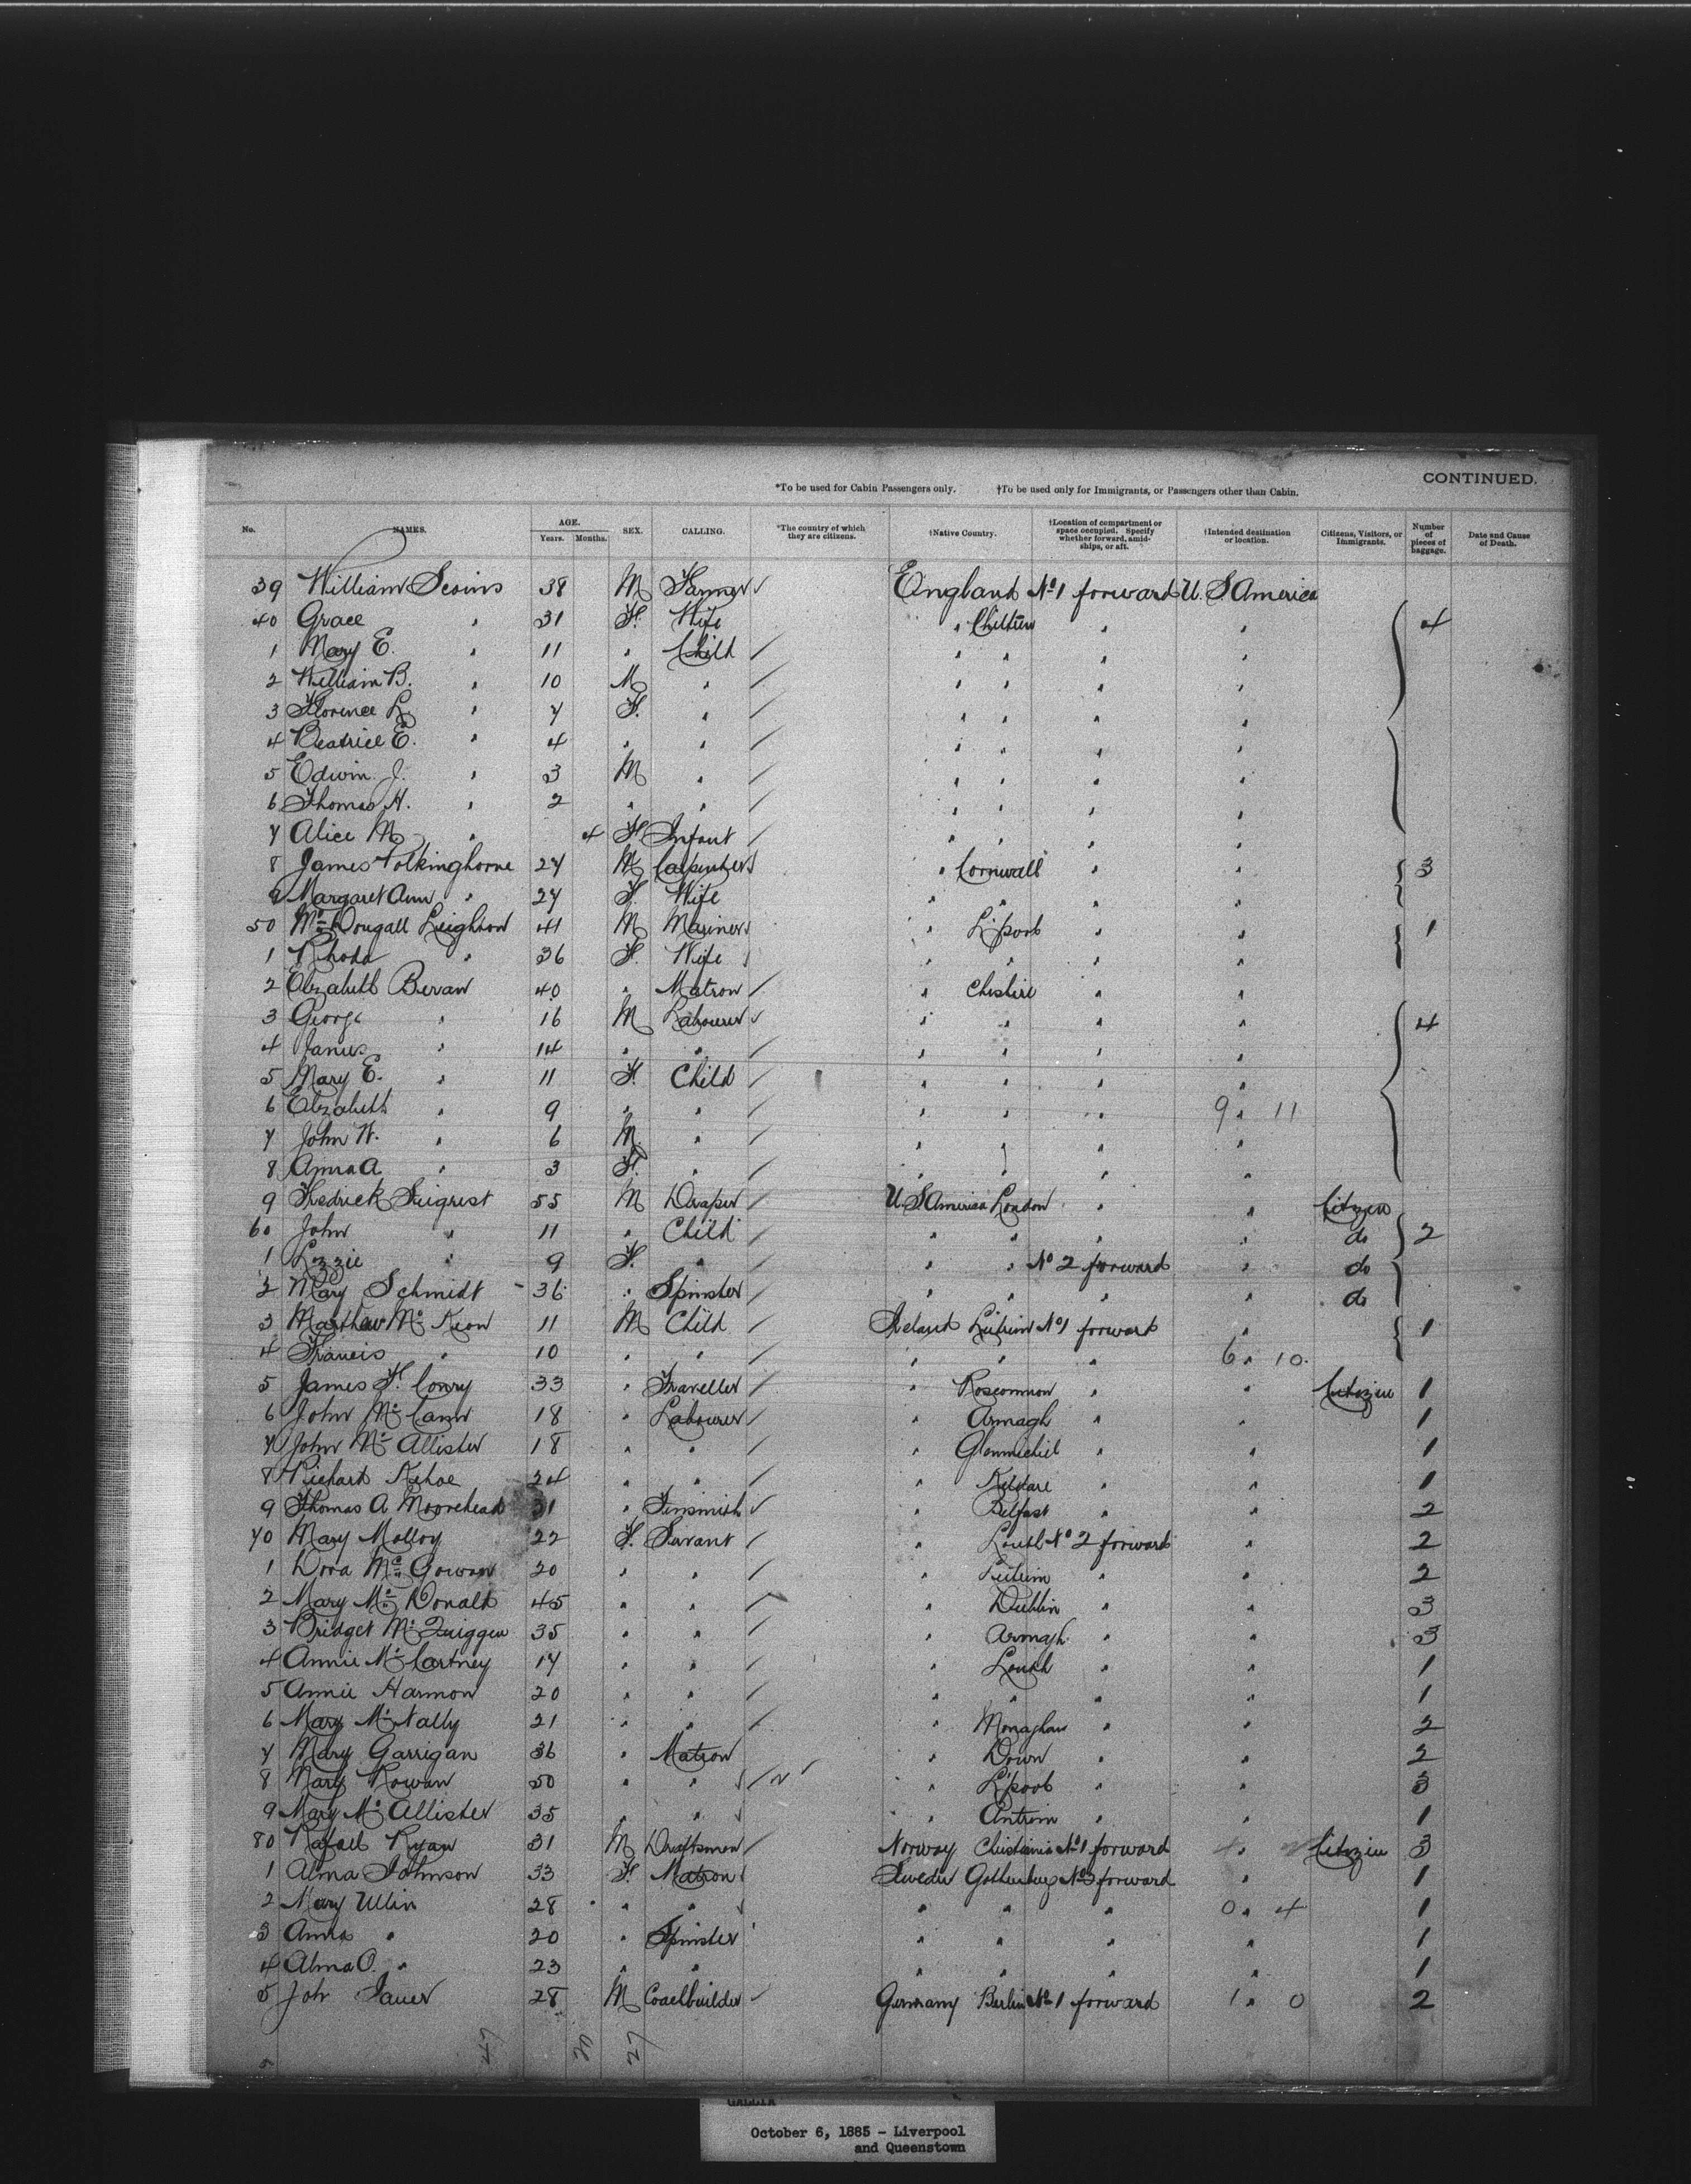 CONTINUED.
*To be used for Cabin Passengers only. †To be used only for Immigrants, or Passengers other than Cabin.
No. NAMES. AGE. Years. Months. SEX. CALLING. *The country of which they are citizens. †Native Country. †Location of compartment or space occupied. Specify whether forward, amidships, or aft. †Intended destination or location. Citizens, Visitors, or Immigrants. Number of pieces of baggage. Date and Cause of Death.
39 William 38 M Farmer England No 1 forward U. S. America
40 Grace " 31 F. Wife " " " 4
1 Mary E. " 11 " Child " " " "
2 William B. " 10 M " " " " "
3 Florence L. " 7 F. " " " " "
4 Beatrice E. " 4 " " " " " "
5 Edwin J. " 3 M " " " " "
6 Thomas H. " 2 " " " " " "
7 Alice M " 4 F Infant " " " "
8 James Polkinghorne 27 M Carpenter " Cornwall " " 3
9 Margaret Ann " 27 F. Wife " " " "
50 Mc Dougall Leighton 41 M Mariner " L'pool " " 1
1 Rhoda " 36 F. Wife " " " "
2 Elizabeth Bevan 40 " Matron " Cheshire " "
3 George " 16 M Labourer " " " " 4
4 James " 14 " " " " " "
5 Mary E. " 11 F. Child " " " "
6 Elizabeth " 9 " " " " " 9 " 11
7 John W. " 6 M. " " " " "
8 Anna A " 3 F. " " " " "
9 Fredrick Seigrist 55 M Draper U. S. America London " " Citizen
60 John " 11 " Child " " " " do 2
1 Lizzie " 9 F. " " " No 2 forward " do
2 Mary Schmidt 36 " Spinster " " " " do
3 Matthew Mc Keon 11 M Child Ireland Leitrim No 1 forward " 1
4 Francis " 10 " " " " " 6 " 10
5 James F. Conry 33 " Traveller " Roscommon " " Citizen 1
6 John Mc Cann 18 " Labourer " Armagh " " 1
7 John Mc Allister 18 " " " " " 1
8 Richard Kehoe 24 " " " Kildare " " 1
9 Thomas A Moorehead 31 " Tinsmith " Belfast " 2
70 Mary Molloy 22 F. Servant " Louth No 2 forward " 2
1 Dora Mc Gowan 20 " " " Leitrim " " 2
2 Mary Mc Donald 45 " " " Dublin " " 3
3 Bridget Mc Quiggen 35 " " " Armagh " " 3
4 Annie Mc Cartney 17 " " " Louth " " 1
5 Annie Harmon 20 " " " " " " 1
6 Mary Mc Nally 21 " " " Monaghan " " 2
7 Mary Garrigan 36 " Matron " Down " " 2
8 Mary Rowan 50 " " " L'pool " " 3
9 Mary Mc Allister 35 " " " Antrim " " 1
80 Rafael Ryan 31 M Draftsman Norway Christiania No 1 forward 4 " Citizen 3
1 Alma Johnson 33 F. Matron Sweden Gothenburg forward " 1
2 Mary Ullin 28 " " " " " 0 " 4 1
3 Anna " 20 " Spinster " " " " 1
4 Alma O. " 23 " " " " " " 1
5 Joh 28 M Coachbuilder Germany Berlin No 1 forward 1 " 0 2
47 20 27
GALLIA
October 6, 1885 - Liverpool
and Queenstown